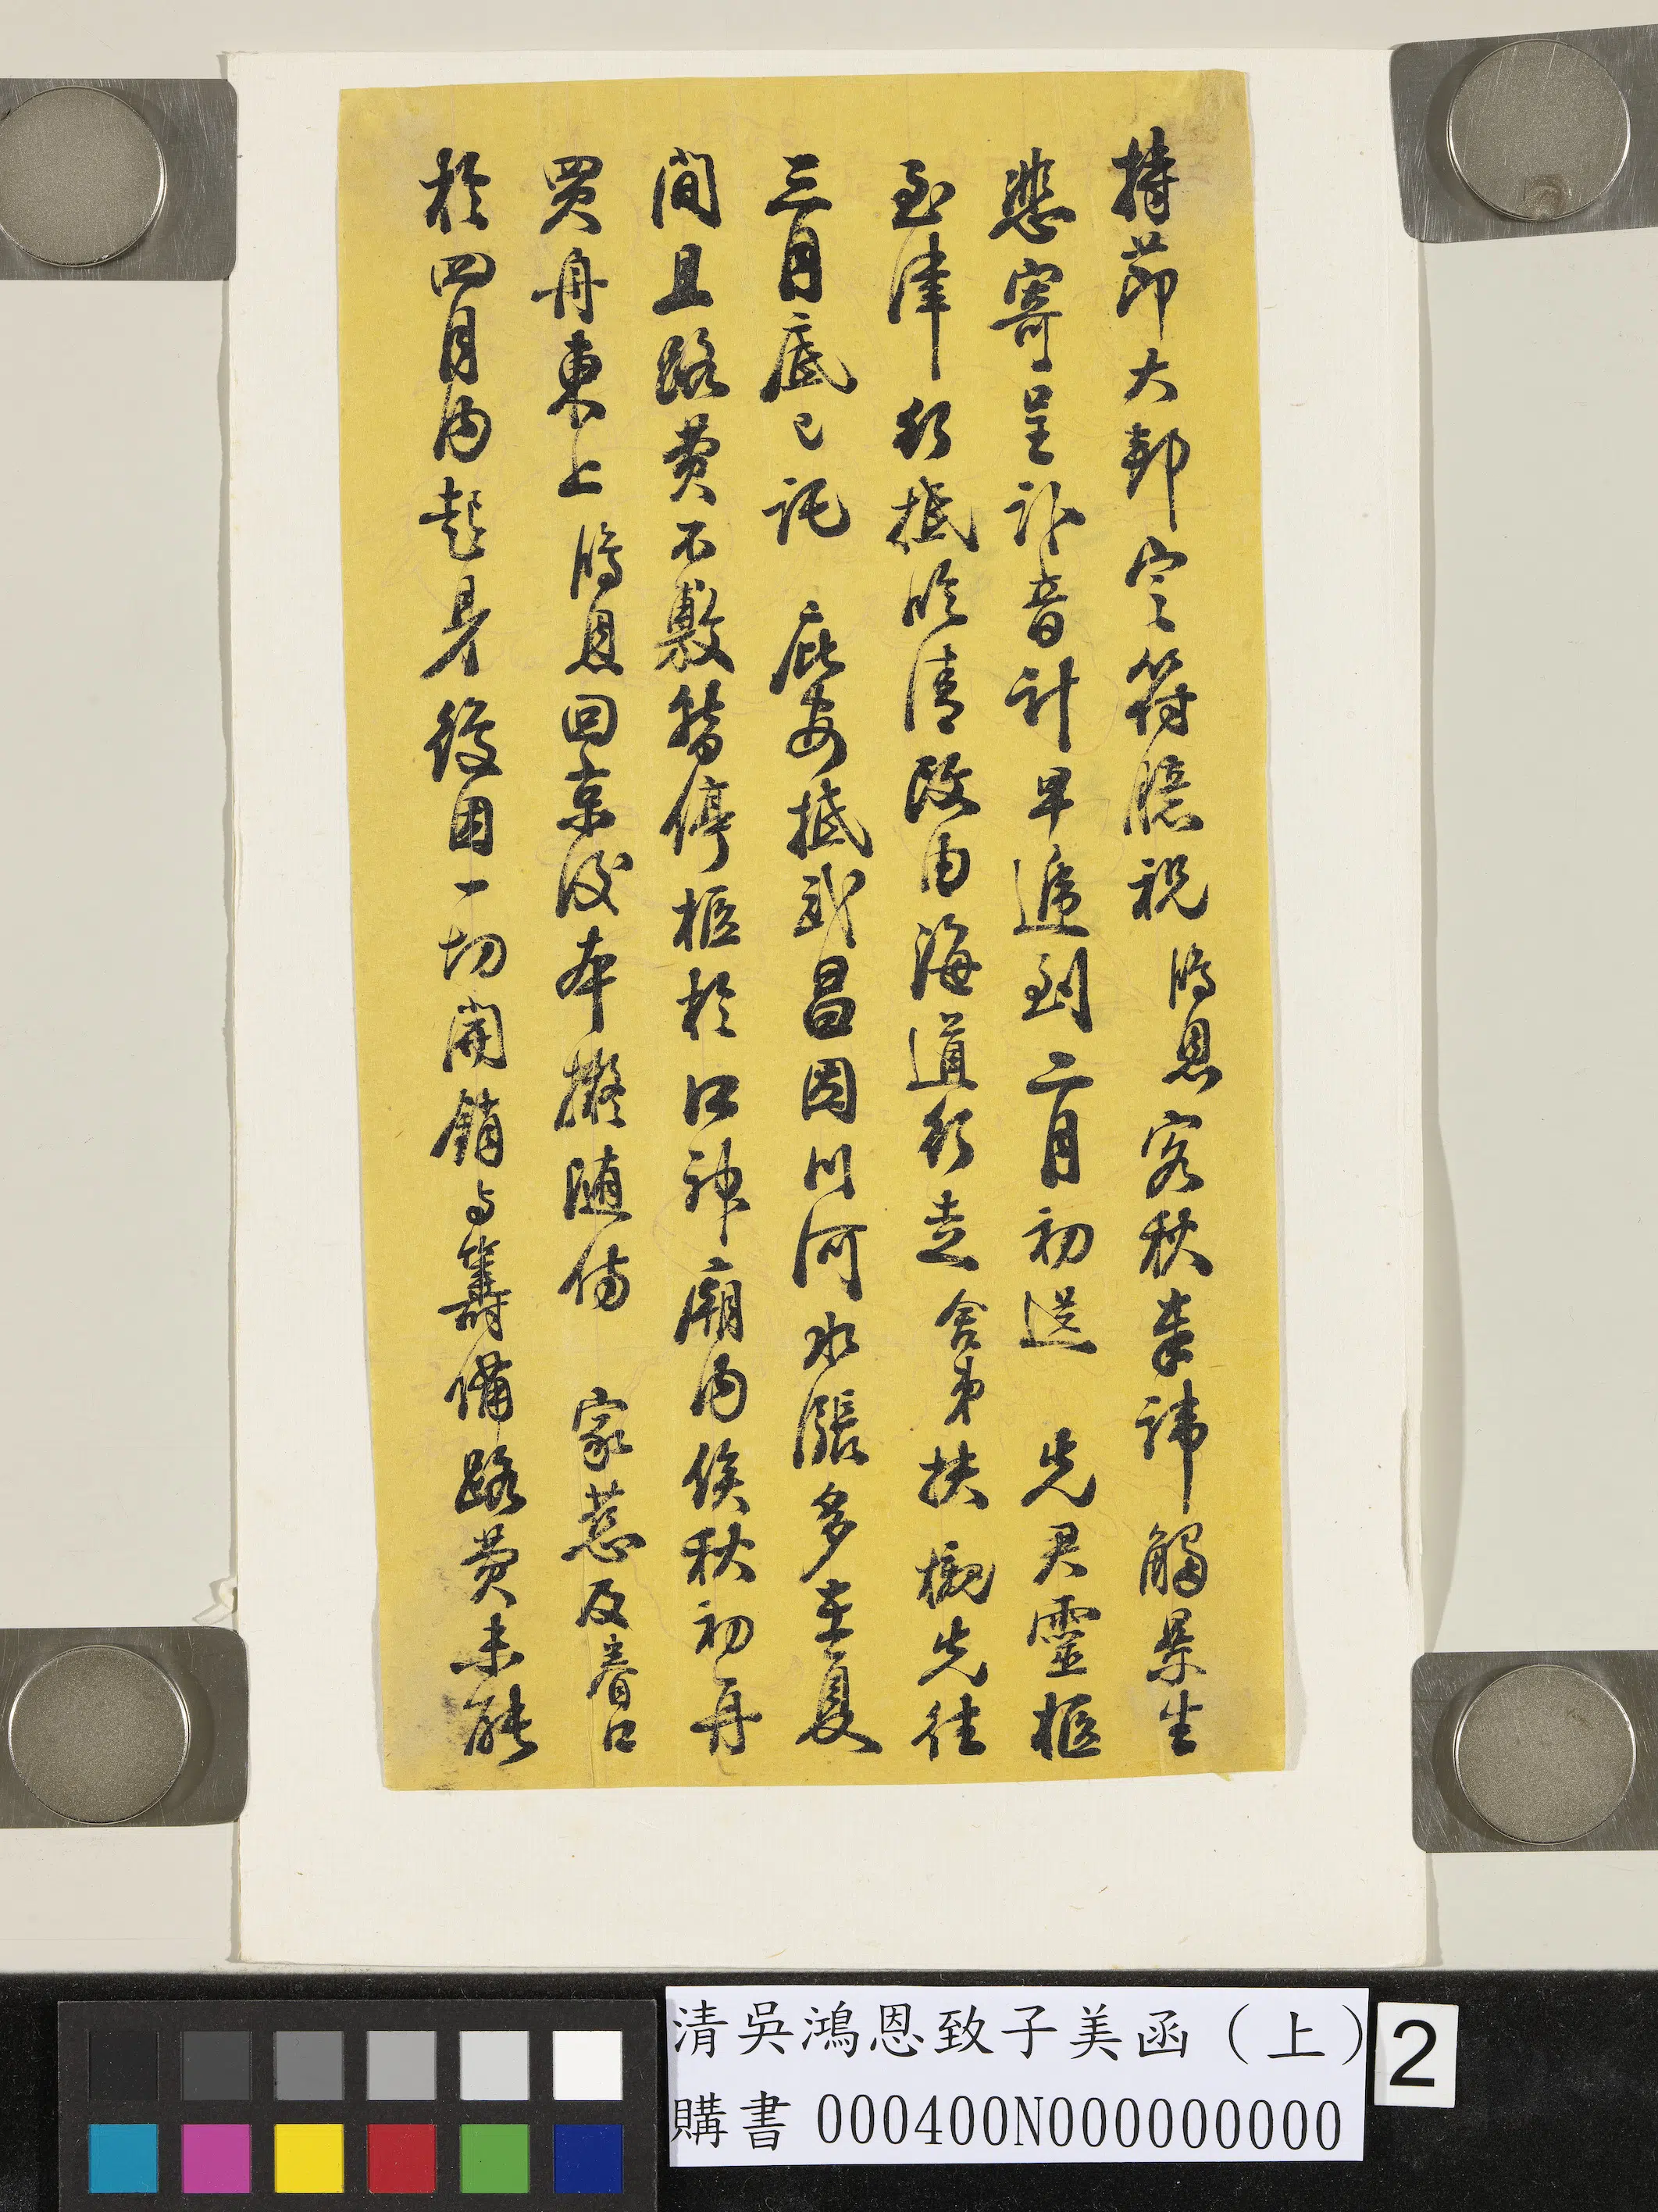 持節大邦定符臆祝鴻恩客秋奉諱觸景生
悲寄呈訃音計早遞到二月初送先君靈柩
至津行抵臨清改由海道行走舍弟扶櫬先往
三月底已託庇安抵武昌因川河水漲多在夏
間且路費不敷暫停柩於江神廟內俟秋初再
買舟東上鴻恩回京後本擬隨侍家慈及眷口
於四月內起身後因一切開銷与籌備路費未能
清吳鴻恩致子美函（上）
購書 000400N000000000
2